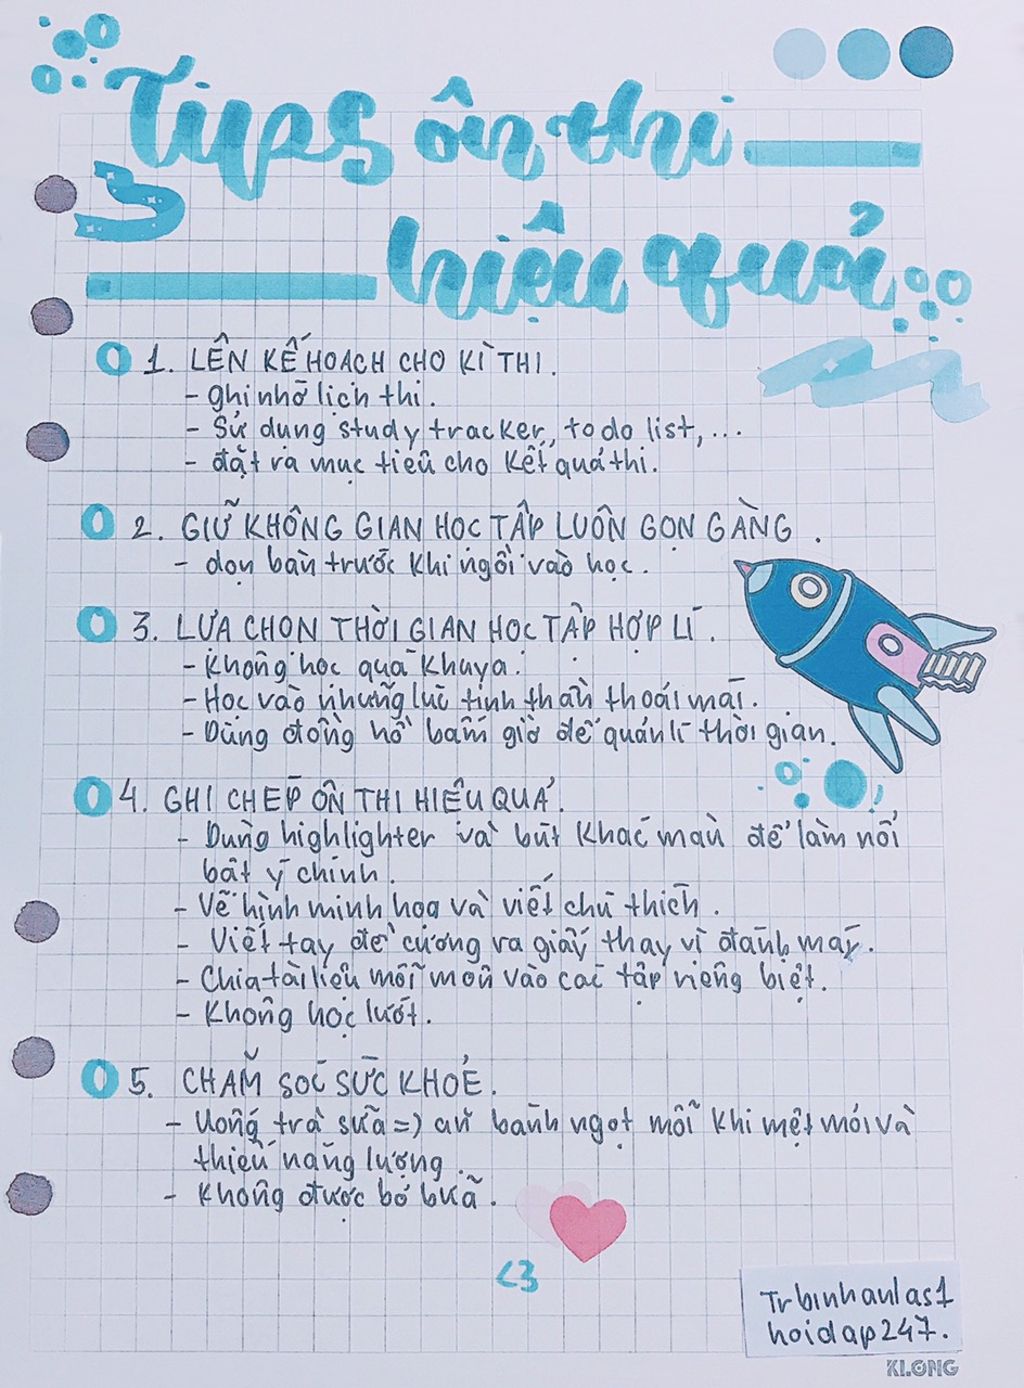 Tips ôn thi
hiệu quả
1. LÊN KẾ HOẠCH CHO KÌ THI.
- Ghi nhớ lịch thi.
- Sử dụng study tracker, to do list,...
- đặt ra mục tiêu cho kết quả thi.
2. GIỮ KHÔNG GIAN HỌC TẬP LUÔN GỌN GÀNG.
- dọn bàn trước khi ngồi vào học.
3. LỰA CHỌN THỜI GIAN HỌC TẬP HỢP LÍ.
- Không học quá khuya.
- Học vào những lúc tinh thần thoải mái.
- Dùng đồng hồ bấm giờ để quản lí thời gian.
4. GHI CHÉP ÔN THI HIỆU QUẢ.
- Dùng highlighter và bút khác màu để làm nổi
bật ý chính.
- Vẽ hình minh họa và viết chú thích.
- Viết tay đề cương ra giấy thay vì đánh máy.
- Chia tài liệu mỗi môn vào các tập riêng biệt.
- Không học lướt.
5. CHĂM SÓC SỨC KHOẺ.
- Uống trà sữa =) ăn bánh ngọt mỗi khi mệt mỏi và
thiếu năng lượng.
- Không được bỏ bữa.
<3
Trbinhanlas1
hoidap247.
KLONG